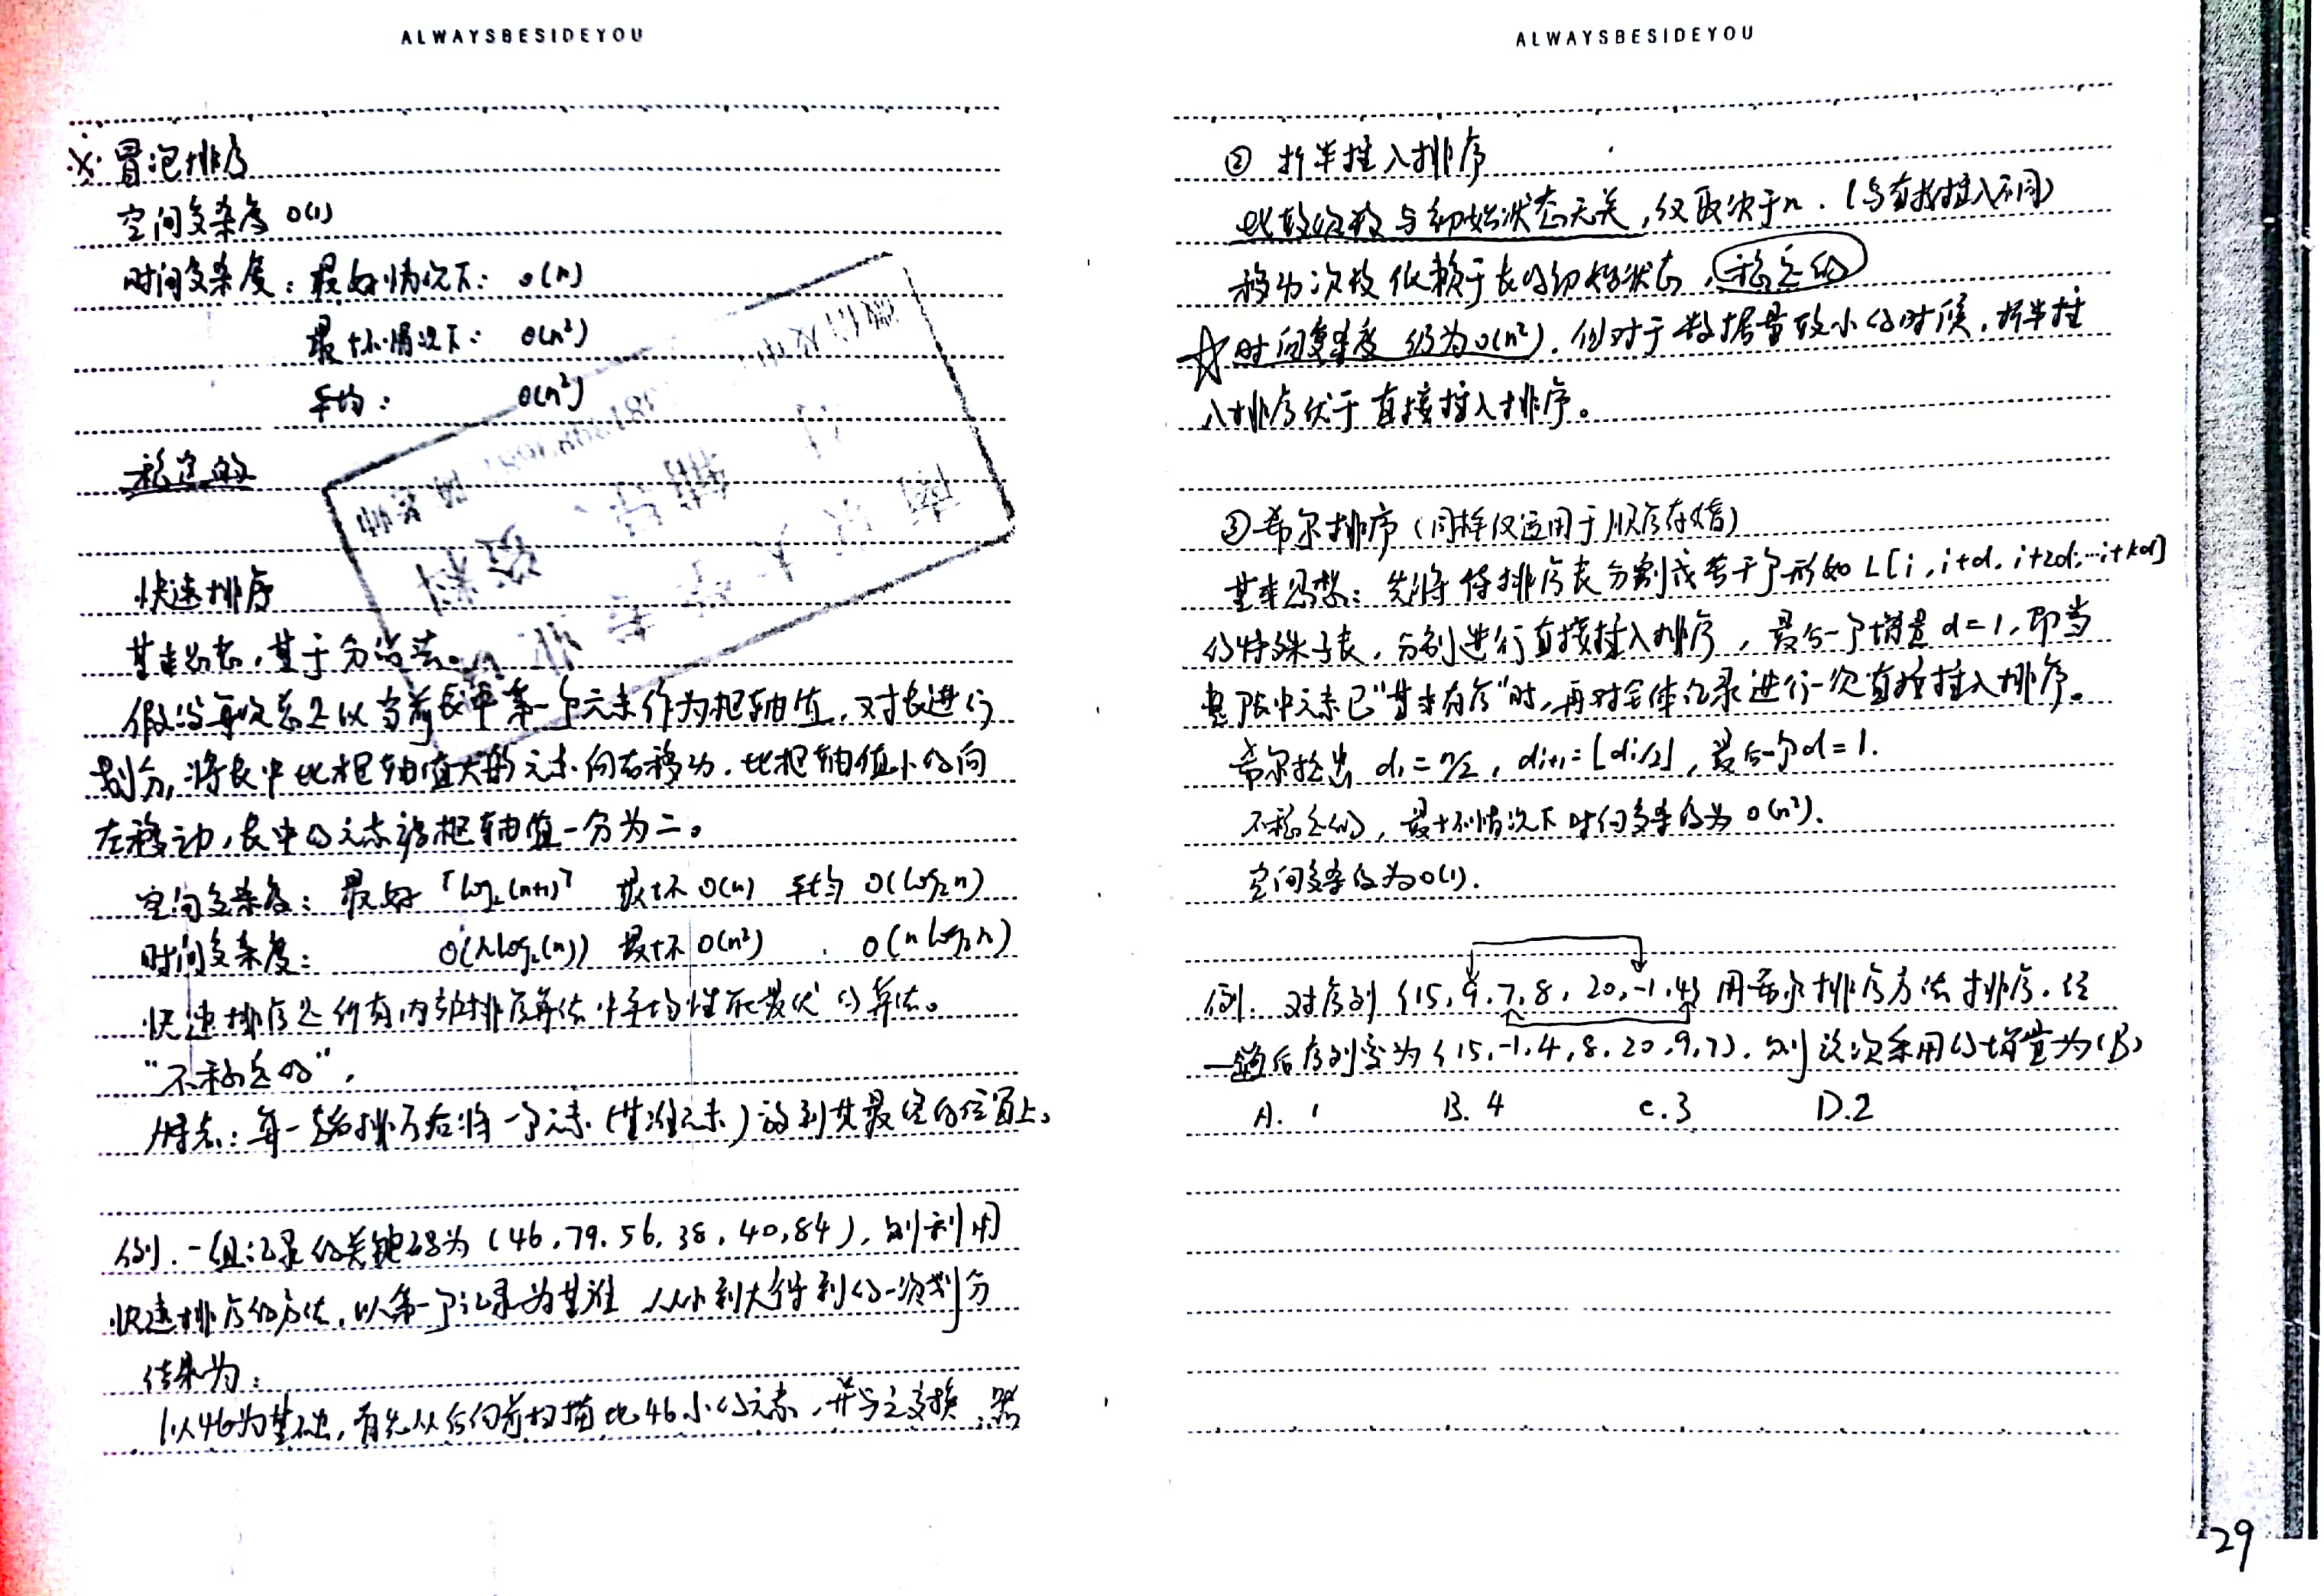 ALWAYSBESIDEYOU
※ 冒泡排序
空间复杂度 O(1)
时间复杂度：最好情况下： O(n)
最坏情况下： O(n²)
平均： O(n²)
稳定的
快速排序
基本思想，基于分治法。
假设每次总是以当前表中第一个元素作为枢轴值，对表进行
划分，将表中比枢轴值大的元素向右移动，比枢轴值小的向
左移动，表中的元素被枢轴值一分为二。
空间复杂度： 最好 ⌈log₂(n+1)⌉ 最坏 O(n) 平均 O(log₂n)
时间复杂度： O(nlog₂(n)) 最坏 O(n²) O(nlog₂n)
快速排序是所有内部排序算法中平均性能最优的算法。
“不稳定的”，
特点：每一趟排序后将一个元素（基准元素）放到其最终的位置上。
例. 一组记录的关键码为（46，79，56，38，40，84），则利用
快速排序的方法，以第一个记录为基准 从小到大得到的一次划分
结果为：
以46为基础，首先从后向前扫描比46小的元素，并与之交换，
ALWAYSBESIDEYOU
② 折半插入排序
比较次数与初始状态无关，仅取决于n．（与直接插入不同）
移动次数依赖于表的初始状态，稳定的
☆时间复杂度 仍为O(n²)．但对于数据量较小的时候，折半插
入排序优于直接插入排序。
③希尔排序（同样仅适用于顺序存储）
基本思想：先将待排序表分割成若干个形如 L[i，i+d，i+2d，…i+kd]
的特殊子表，分别进行直接插入排序，最后一个增量 d=1，即当
整個中元素已“基本有序”时，再对全体记录进行一次直接插入排序。
希尔提出 d₁=n/2，dᵢ₊₁=⌊dᵢ/2⌋，最后一个d=1．
不稳定的，最坏情况下时间复杂度为 O(n²)．
空间复杂度为O(1)．
例. 对序列 {15，9，7，8，20，-1，4} 用希尔排序方法排序，经
一趟后序列变为 {15，-1，4，8，20，9，7}．则该次采用的增量为(B)
A. 1 B. 4 C. 3 D. 2
29